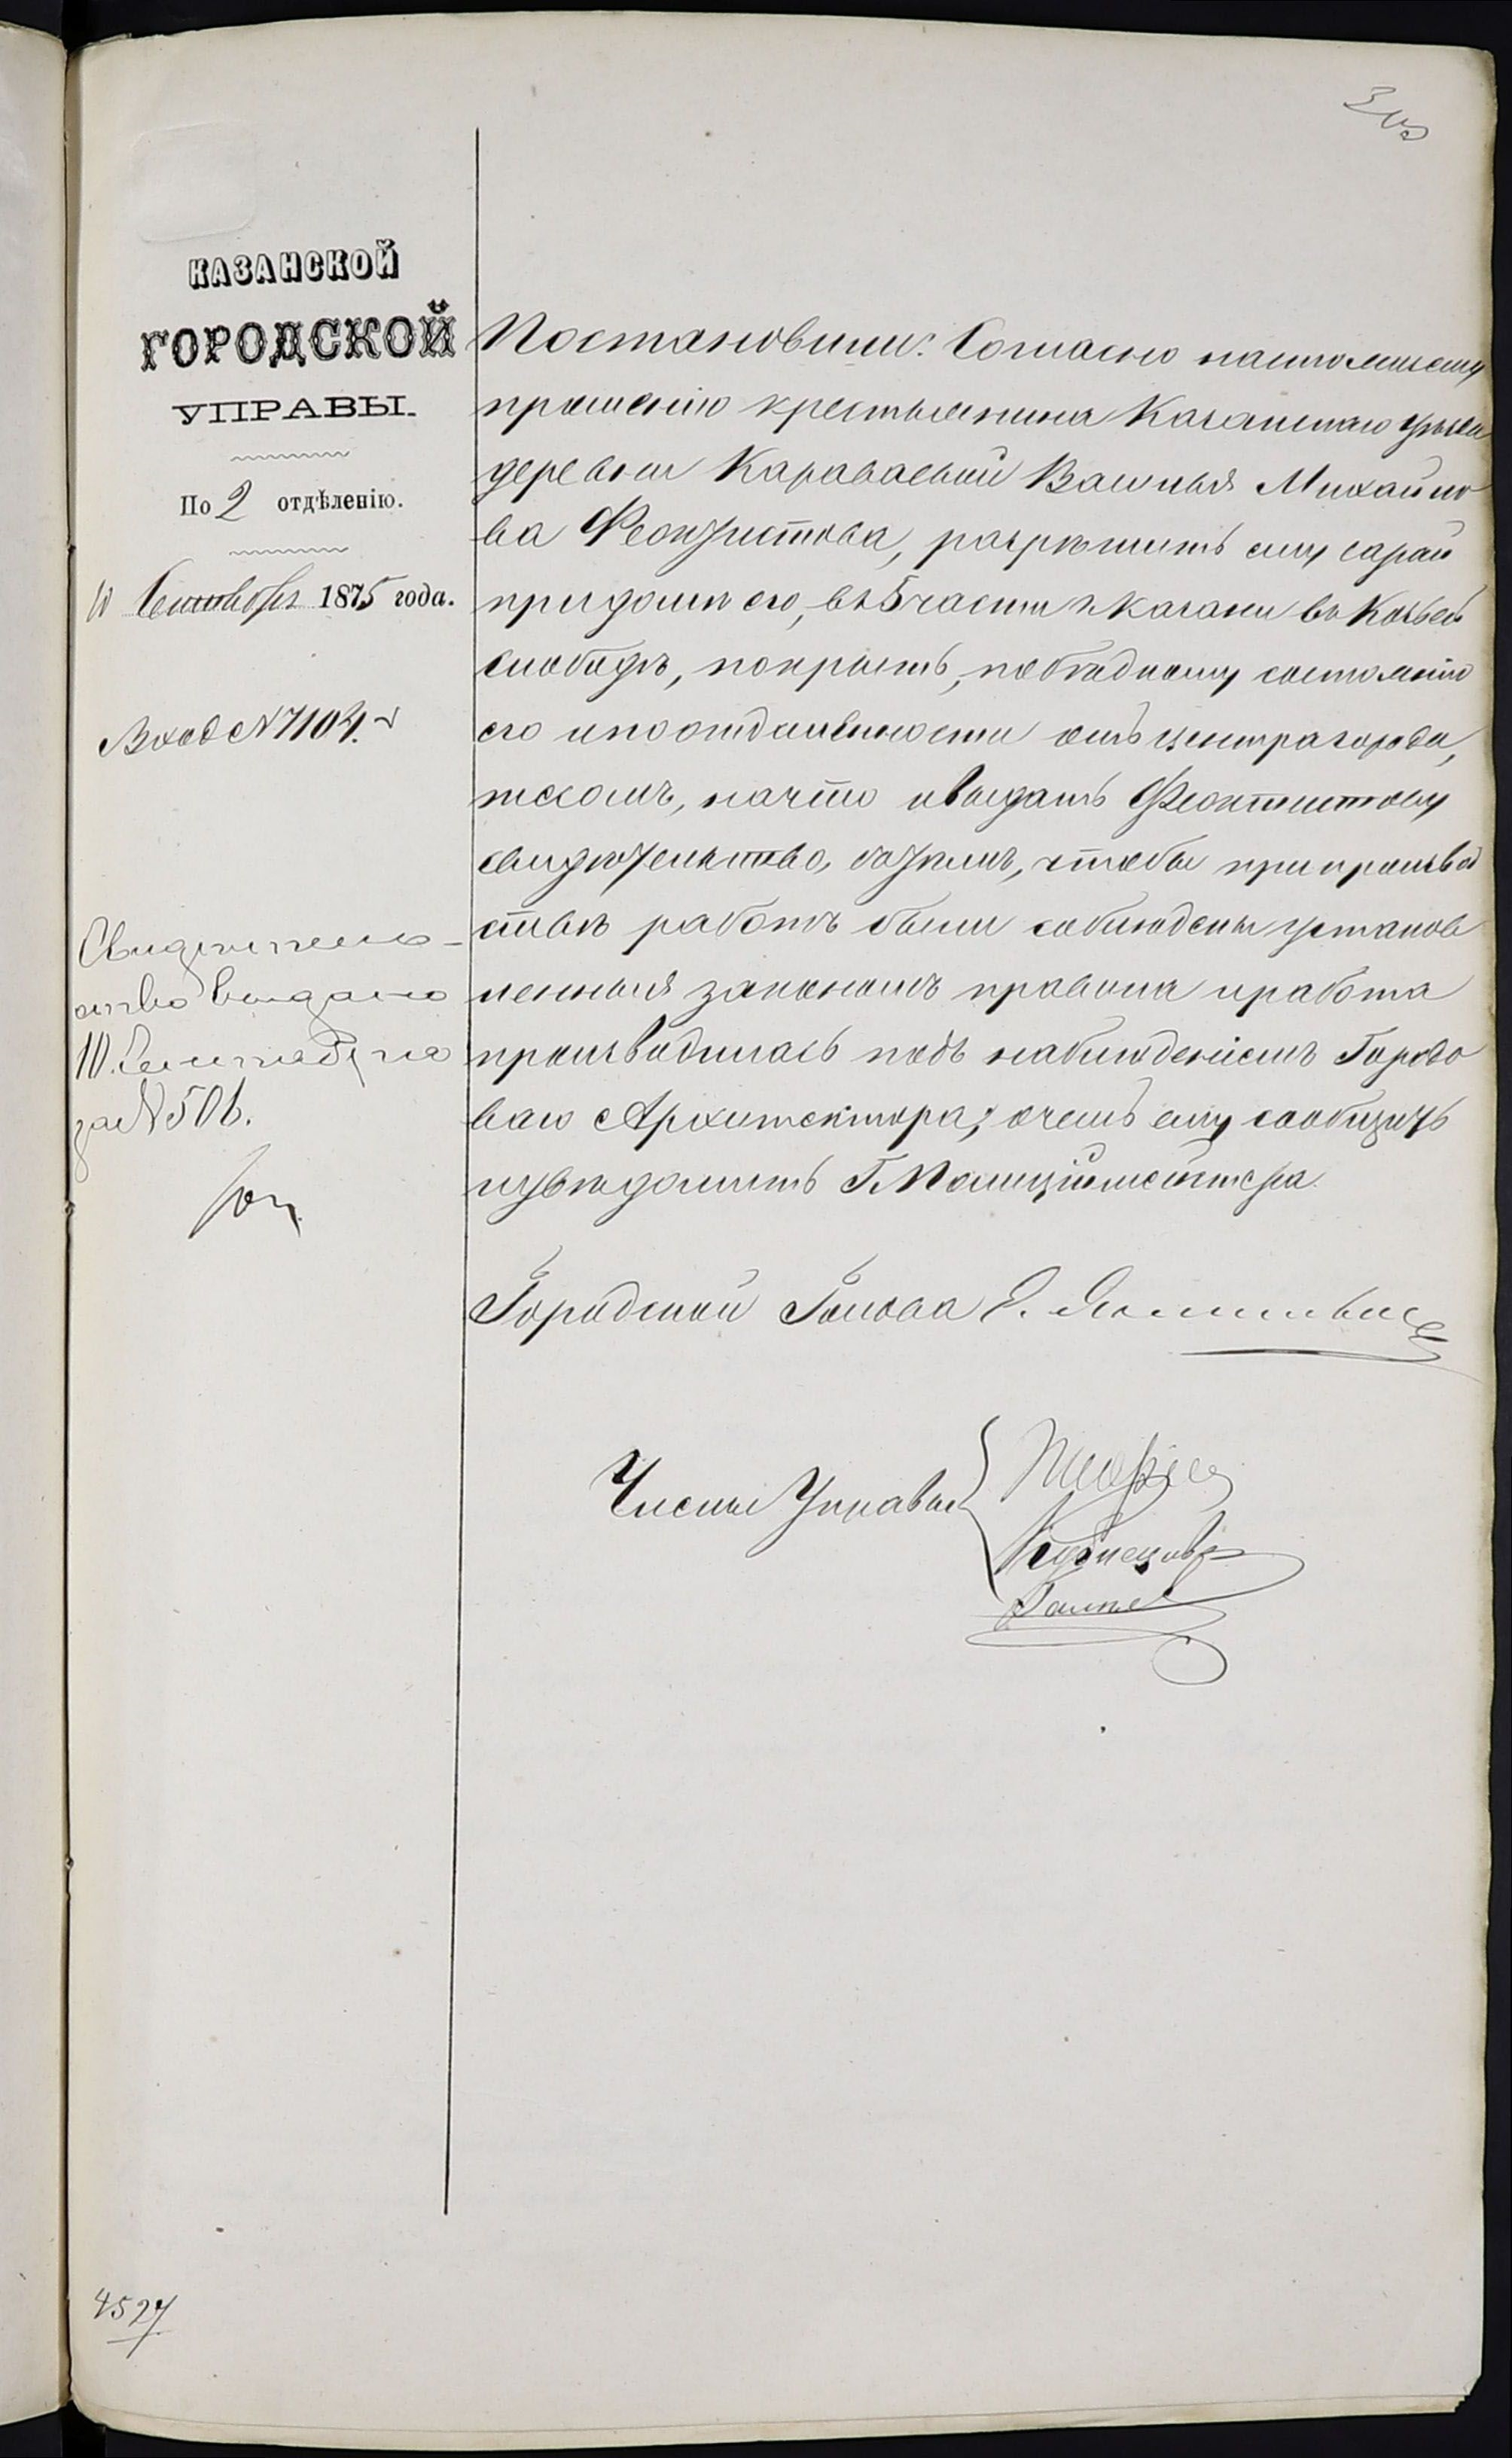 КАЗАНСКОЙ
ГОРОДСКОЙ
УПРАВЫ.
По 2 отдѣленію.
10 Сентября 1875 года.
Вход № 7104.
Свидѣтель-
ство выдано
10. Сентября
за № 506.
Постановили: Согласно настоящему
прошенію крестьянина Казанскаго уѣзда
деревни Караваевой Василья Михайло
ва Феоктистова, разрѣшить ему сарай
при домѣ его, въ 5 части г. Казани въ Козьей
слободѣ, покрыть, по бѣдному состоянію
его и по отдаленности отъ центра города,
тесомъ, на что и выдать Феоктистову
свидѣтельство, съ тѣмъ, чтобы при производ
ствѣ работъ были соблюдены установ
ленныя закономъ правила и работа
производилась подъ наблюденіемъ Городо
ваго Архитектора; о чемъ ему сообщить
и увѣдомить Г. Полиціймейстера.
Городской Голова
Члены Управы
Кузнецовъ
4527